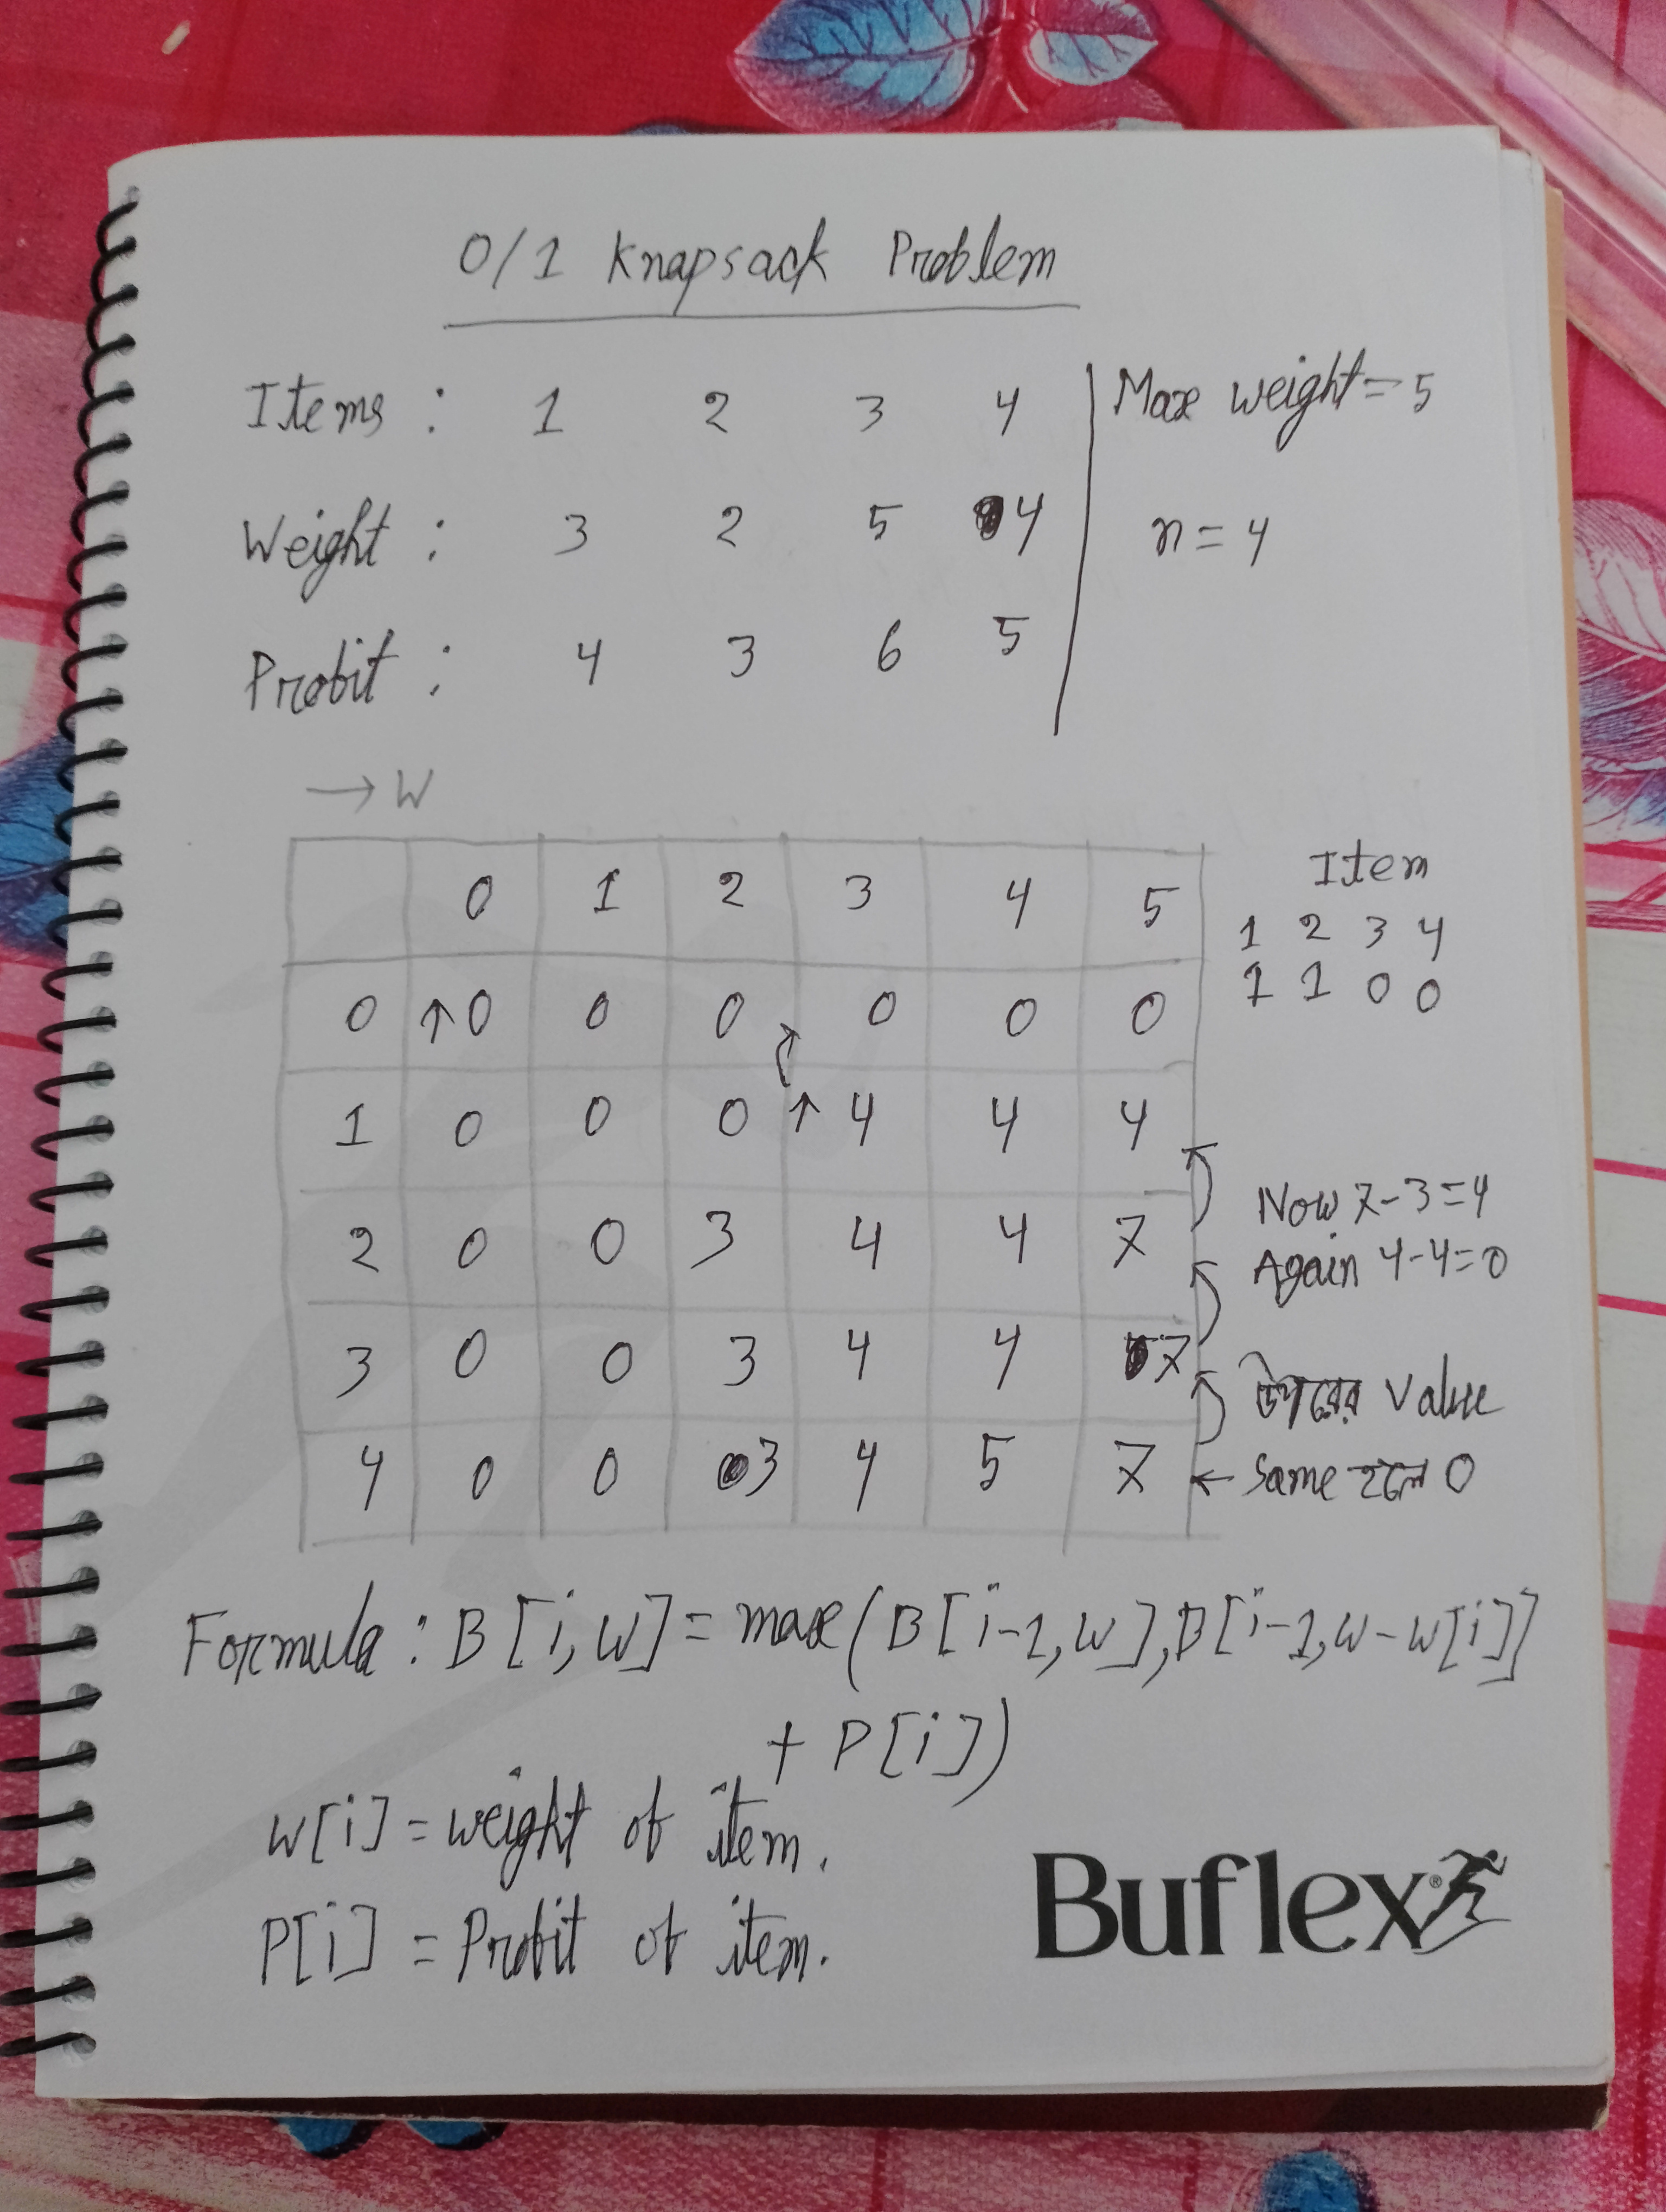 0/1 Knapsack Problem
Items : 1 2 3 4
Max weight = 5
Weight : 3 2 5 4
n = 4
Profit : 4 3 6 5
→ W
0 1 2 3 4 5
0 ↑0 0 0 0 0 0
1 0 0 0 ↑ 4 4 4
2 0 0 3 4 4 7
3 0 0 3 4 4 7
4 0 0 3 4 5 7
Item
1 2 3 4
1 1 0 0
Now 7-3=4
Again 4-4=0
উপরের value
← Same হলে 0
Formula : B[i,w] = max(B[i-1,w], B[i-1,w-w[i]]
+ P[i])
w[i] = weight of item.
P[i] = Profit of item.
Buflex®